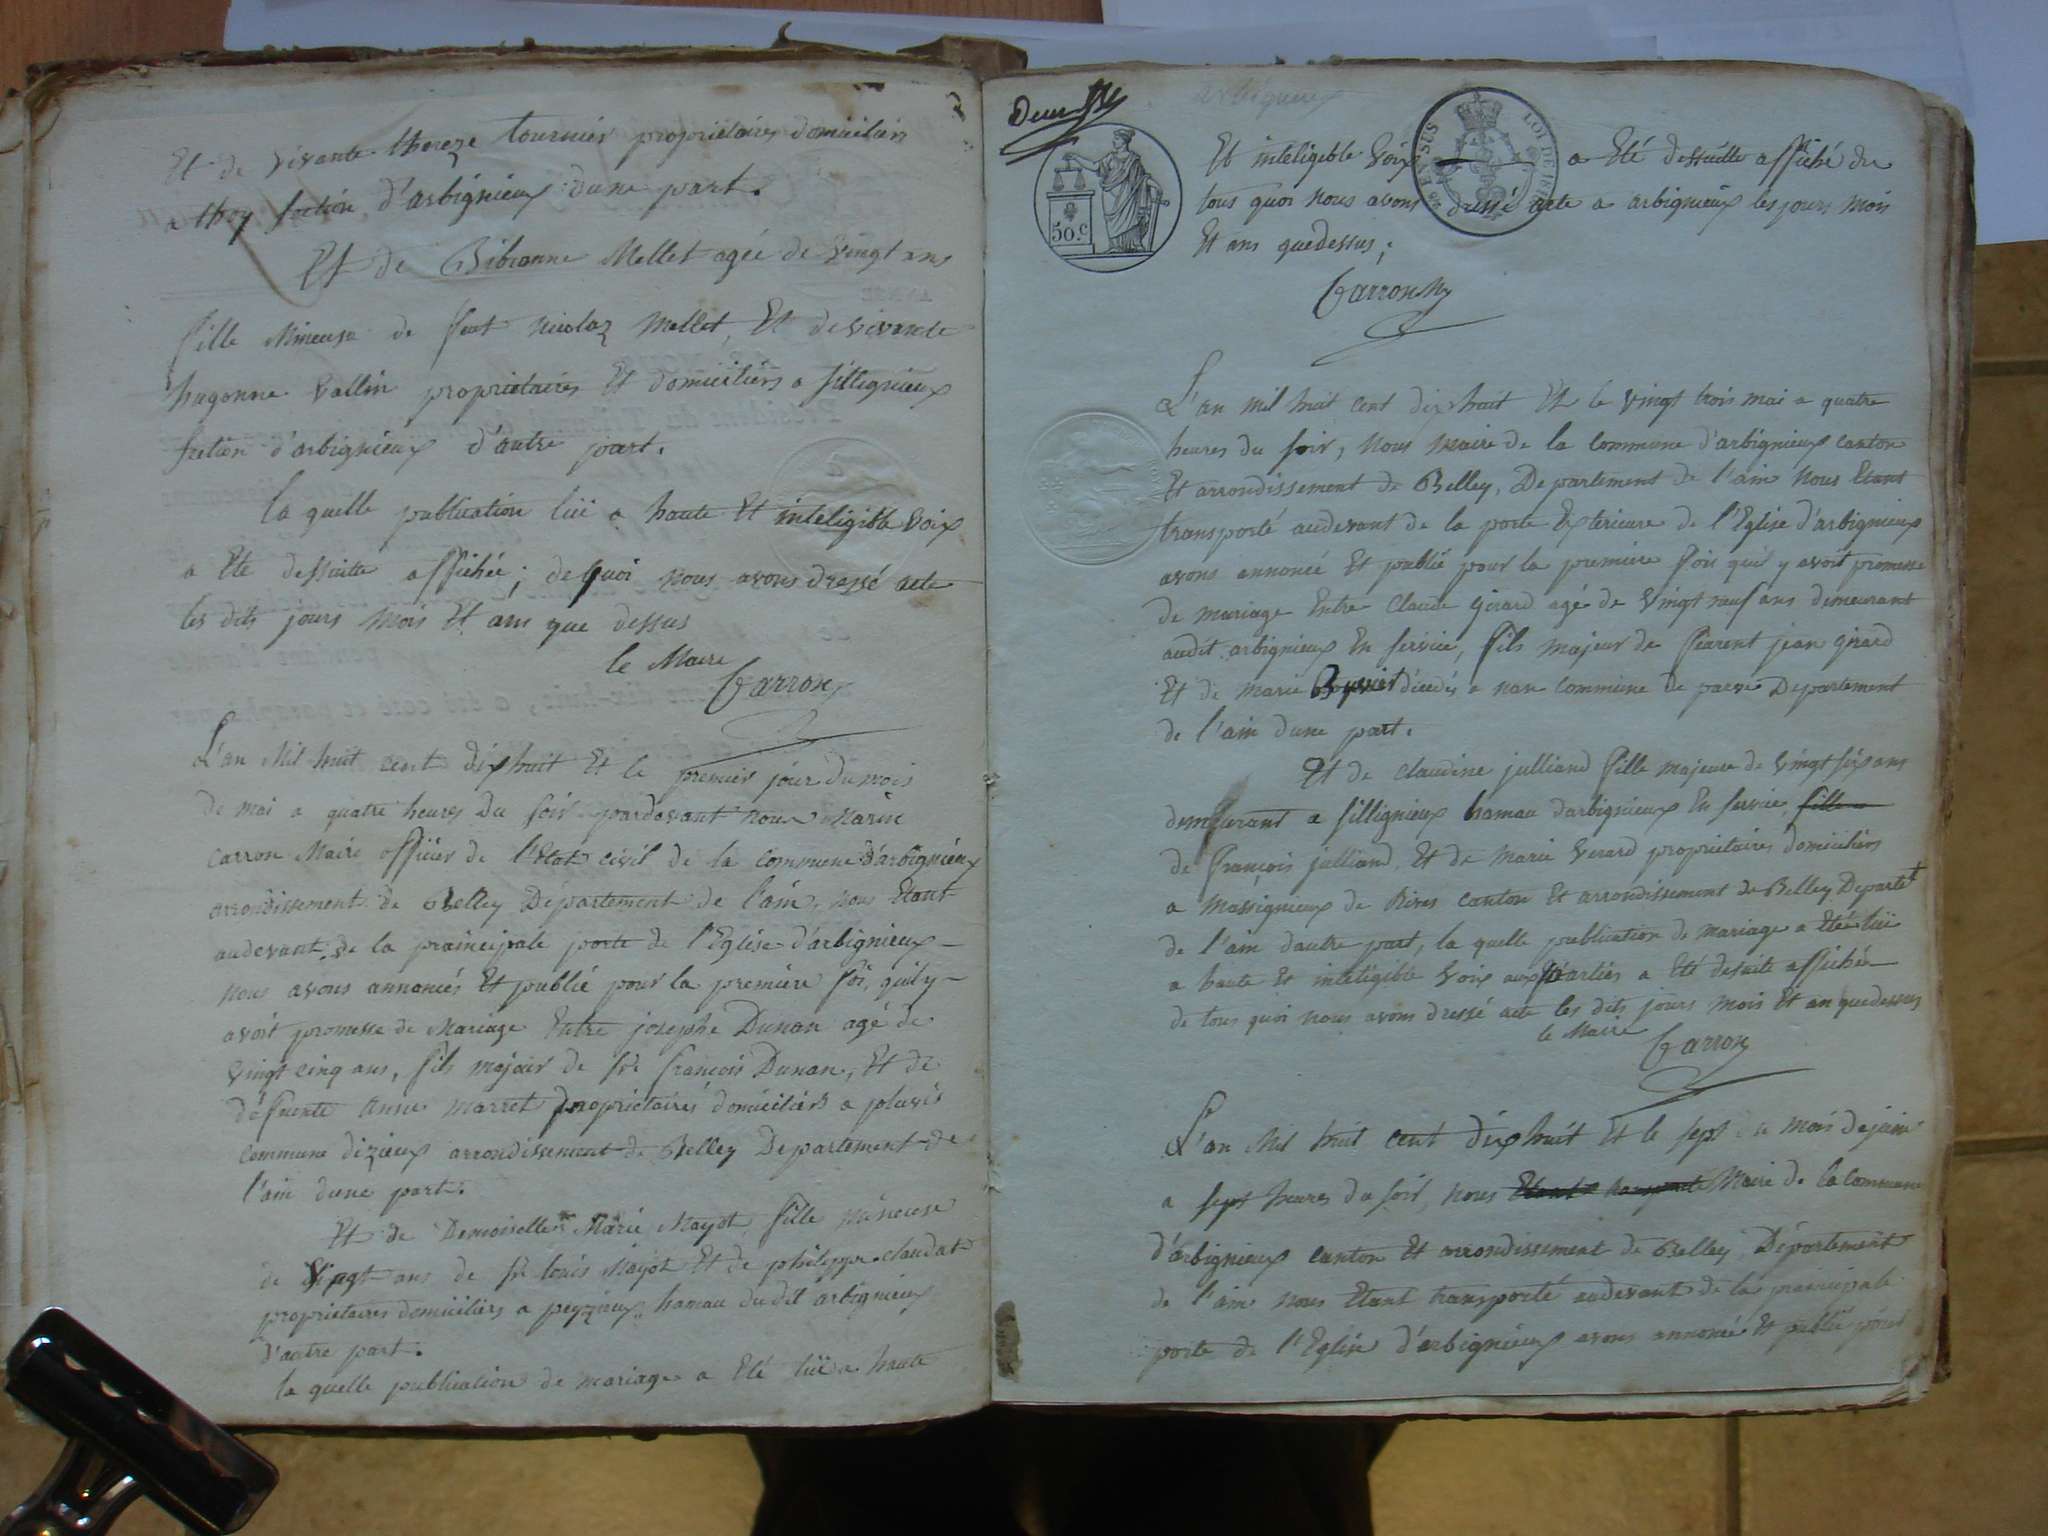 Et de vivante thereze tournier propriétaires domiciliés
a thoy section d'arbignieux d'une part.
Et de Bibianne Mellet agée de vingt ans
fille Mineure de feut nicolaz mellet, Et de vivante
hugonne vallin proprietaires Et domiciliérs a sillignieux
section d'arbignieux d'autre part.
la quelle publication lüe a haute Et inteligible voix
a Eté dessuitte affichée; dequoi nous avons dressé acte
les dits jours mois Et ans que dessus
le Maire
Carron
L'an Mil huit cent dixhuit Et le premier jour du mois
de mai a quatre heures du soir pardavant nous Marin
Carron Maire officier de l'Etat civil de la commune d'arbignieux
arrondissement de Belley Département de l'ain, nous Etant
audevant de la praincipale porte de l'Eglise d'arbignieux
nous avons annoncés Et publié pour la premiere foi, quily
avoit promesse de Mariage Entre josephe Dunan agé de
vingt cinq ans, fils majeur de François Dunan, Et de
défunte anne marret proprietaires domiciliérs a
commune dizieux arrondissement de Belley Departement de
l'ain dune part.
Et de Demoiselle Marie Mayot fille mineuse
de vingt ans de louis Mayot Et de philippe claudat
proprietaires domiciliérs a peyzieux hamau dudit arbignieux
d'autre part.
la quelle publication de mariage a Eté lüe a haute
Deux
arbignieux
50.c
EN SUS
LOI DE 1816
Et inteligible voix a Eté dessuitte affiché de
tous quoi nous avons dressé acte a arbignieux les jours mois
Et ans quedessus;
Carron
L'an mil huit cent dix huit Et le vingt trois mai a quatre
heures du soir, nous maire de la commune d'arbignieux canton
Et arrondissement de Belley, Departement de l'ain nous Etant
transporté audevant de la porte Exterieure de l'Eglise d'arbignieux
avons annoncé Et publié pour la premiere fois quil y avoit promesse
de mariage Entre Claude girard agé de vingt neuf ans demeurant
audit arbignieux En service, fils majeur de jean girard
Et de marie décédés a nan commune de Departement
de l'ain dune part.
Et de claudine julliand fille majeure de vingt six ans
demeurant a sillignieux hamau d'arbignieux En service, fille
de françois julliand, Et de marie verard proprietaires domiciliérs
a Massignieux de Rives canton Et arrondissement de Belley Departet
de l'ain dautre part, la quelle publication de mariage a Eté lüe
a haute Et inteligible voix aux parties a Eté desuite affiché
de tous quoi nous avons dressé acte les dits jours mois Et an quedessus
le Maire
Carron
L'an Mil huit cent dixhuit Et le sept du mois dejuin
a sept heures du soir, nous Maire de la Commune
d'arbignieux canton Et arrondissement de Belley Département
de l'ain nous Etant transporté audevant de la praincipale
porte de l'Eglise d'arbignieux avons annoncé Et publié pour